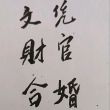 文凭
財官
合婚